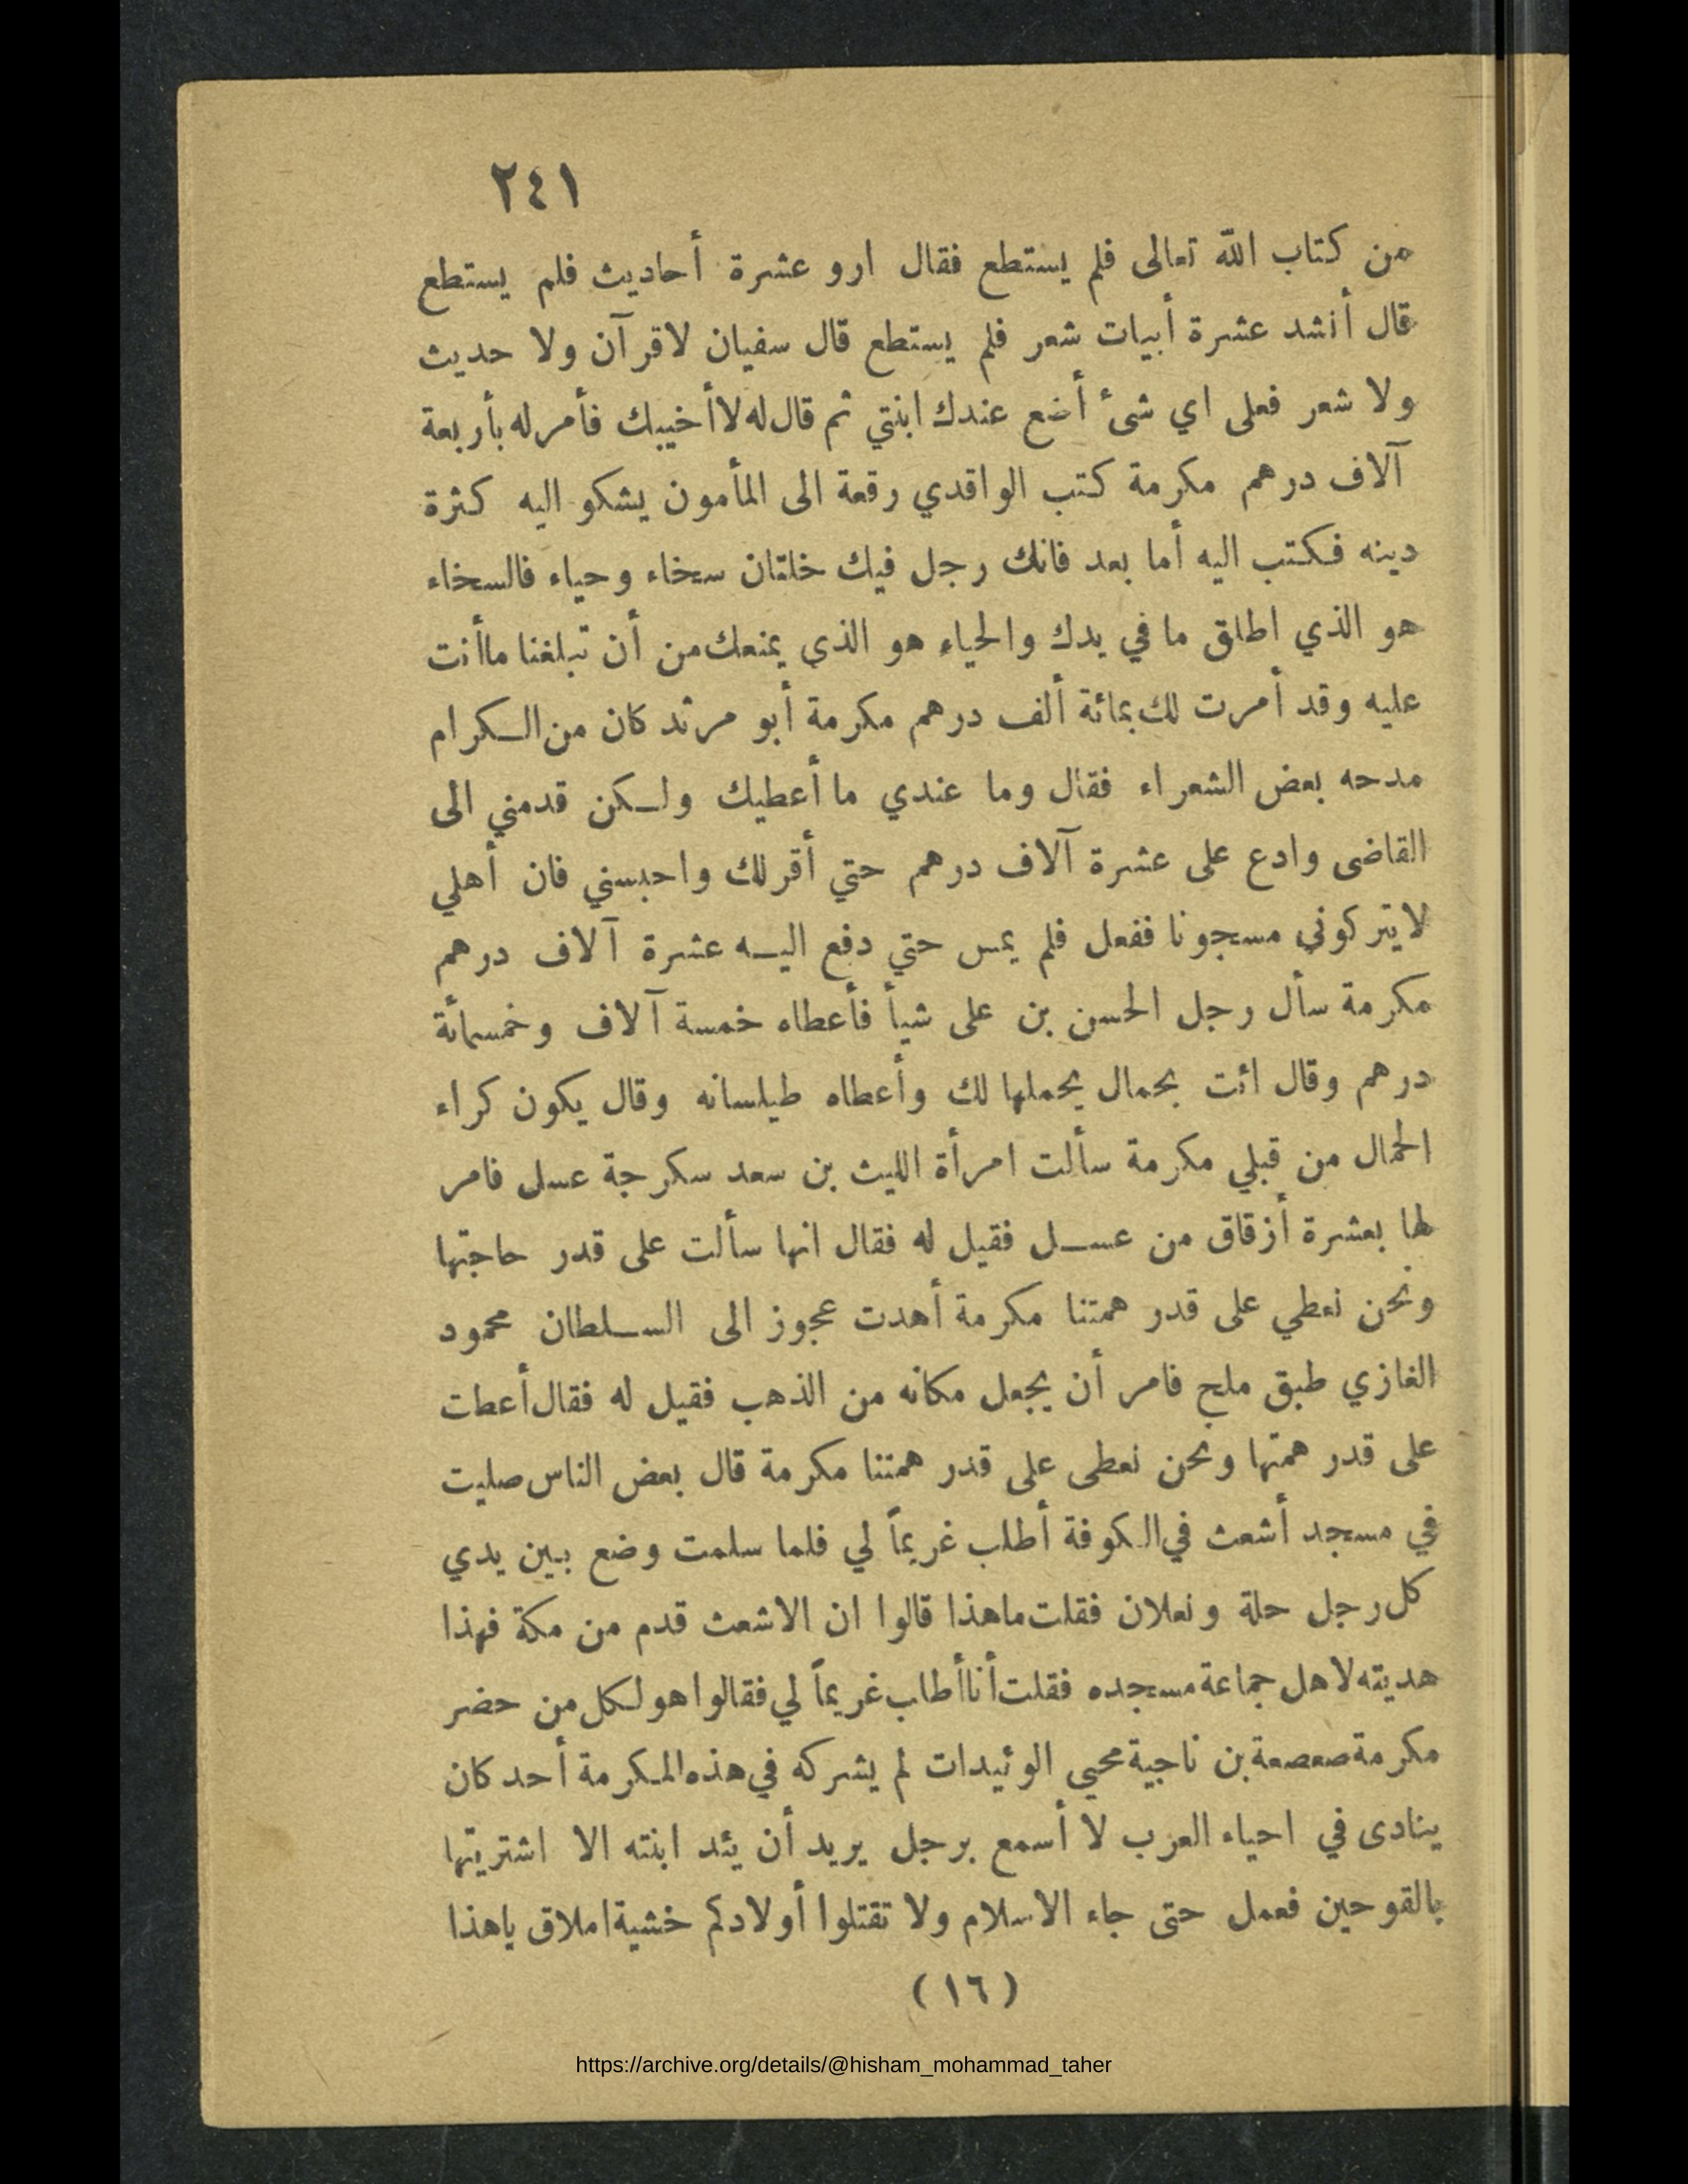 ٢٤١
من كتاب الله تعالى فلم يستطع فقال ارو عشرة أحاديث فلم يستطع
قال أنشد عشرة أبيات شعر فلم يستطع قال سفيان لاقرآن ولا حديث
ولا شعر فعلى اي شئ أضع عندك ابنتي ثم قال له لا أخيبك فأمر له بأربعة
آلاف درهم مكرمة كتب الواقدي رقعة الى المأمون يشكو اليه كثرة
دينه فكتب اليه أما بعد فانك رجل فيك خلتان سخاء وحياء فالسخاء
هو الذي اطلق ما في يدك والحياء هو الذي يمنعك من أن تبلغنا ماأنت
عليه وقد أمرت لك بمائة ألف درهم مكرمة أبو مرثد كان من الكرام
مدحه بعض الشعراء فقال وما عندي ما أعطيك ولكن قدمني الى
القاضى وادع على عشرة آلاف درهم حتي أقر لك واحبسني فان أهلي
لايتركوني مسجونا ففعل فلم يمس حتي دفع اليه عشرة آلاف درهم
مكرمة سأل رجل الحسن بن على شيأ فأعطاه خمسة آلاف وخمسمائة
درهم وقال ائت بحمال يحملها لك وأعطاه طيلسانه وقال يكون كراء
الحمال من قبلي مكرمة سألت امرأة الليث بن سعد سكرجة عسل فامر
لها بعشرة أزقاق من عسل فقيل له فقال انها سألت على قدر حاجتها
ونحن نعطي على قدر همتنا مكرمة أهدت عجوز الى السلطان محمود
الغازي طبق ملح فامر أن يجعل مكانه من الذهب فقيل له فقال أعطت
على قدر همتها ونحن نعطى على قدر همتنا مكرمة قال بعض الناس صليت
في مسجد أشعث في الكوفة أطلب غريماً لي فلما سلمت وضع بين يدي
كل رجل حلة ونعلان فقلت ماهذا قالوا ان الاشعث قدم من مكة فهذا
هديته لاهل جماعة مسجده فقلت أنا أطاب غريماً لي فقالوا هو لكل من حضر
مكرمة صعصعة بن ناجية محيى الوئيدات لم يشركه في هذه المكرمة أحد كان
ينادى في احياء العرب لا أسمع برجل يريد أن يئد ابنته الا اشتريتها
بالقوحين فعمل حتى جاء الاسلام ولا تقتلوا أولادكم خشية املاق ياهذا
( ١٦ )
https://archive.org/details/@hisham_mohammad_taher